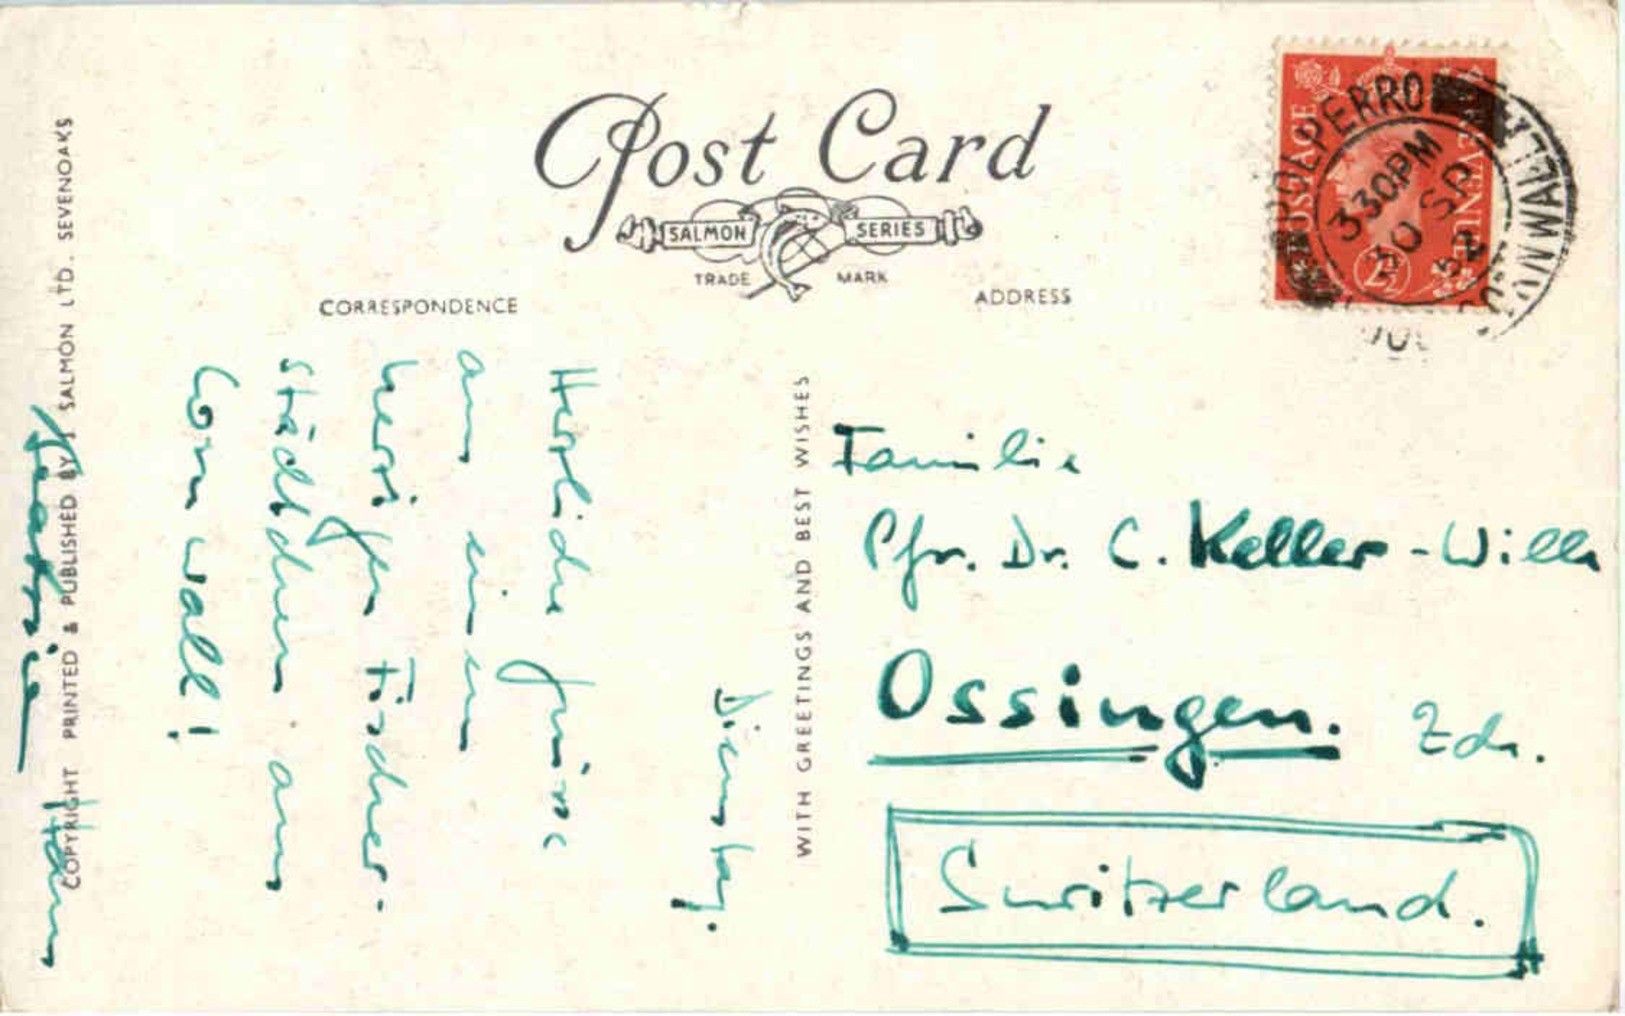 Post Card
SALMON SERIES
TRADE MARK
CORRESPONDENCE
ADDRESS
POSTAGE REVENUE
2½
POLPERRO
3 30 PM
30 SP
52
WITH GREETINGS AND BEST WISHES
Dienstag.
Herzliche Grüsse
aus einem
herzigen Fischer-
städtchen aus
Cornwall!
Hans
COPYRIGHT PRINTED & PUBLISHED BY J SALMON LTD. SEVENOAKS
Familie
Pfr. Dr. C. Keller-Wille
Ossingen. Zch.
Switzerland.